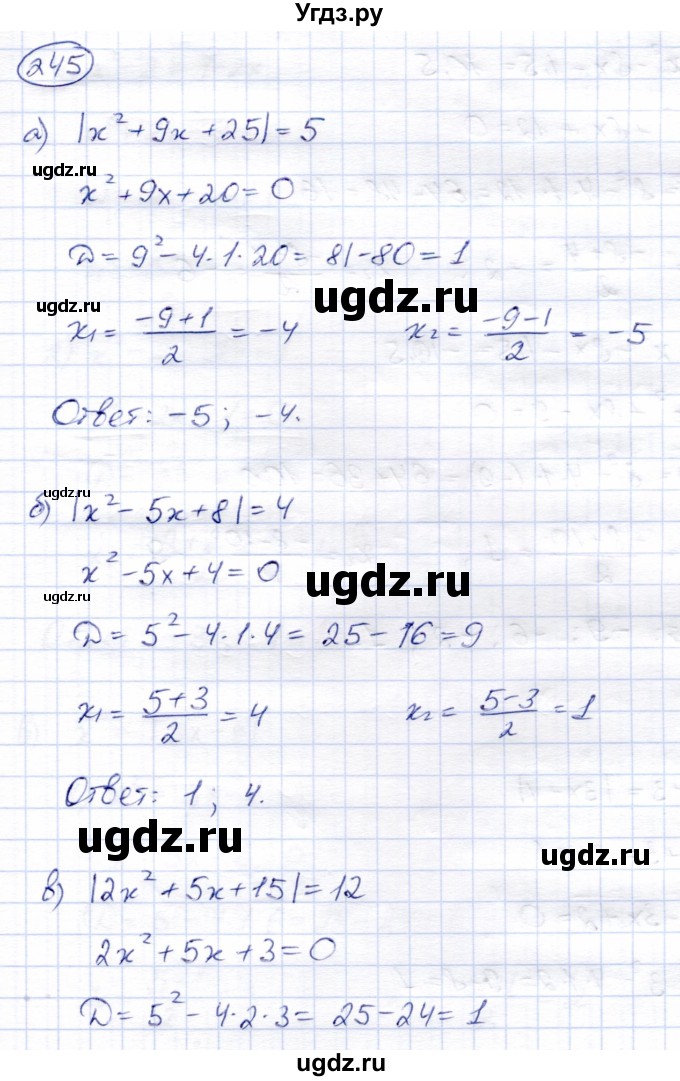 Угдз.ру
245
а) |x² + 9x + 25| = 5
ugdz.ru
x² + 9x + 20 = 0
D = 9² - 4·1·20 = 81 - 80 = 1
ugdz.ru ugdz.ru
x₁ = (-9+1)/2 = -4 x₂ = (-9-1)/2 = -5
Ответ: -5; -4.
ugdz.ru
б) |x² - 5x + 8| = 4
x² - 5x + 4 = 0
ugdz.ru ugdz.ru
D = 5² - 4·1·4 = 25 - 16 = 9
x₁ = (5+3)/2 = 4 x₂ = (5-3)/2 = 1
Ответ: 1; 4.
ugdz.ru ugdz.ru
в) |2x² + 5x + 15| = 12
2x² + 5x + 3 = 0
D = 5² - 4·2·3 = 25 - 24 = 1
ugdz.ru